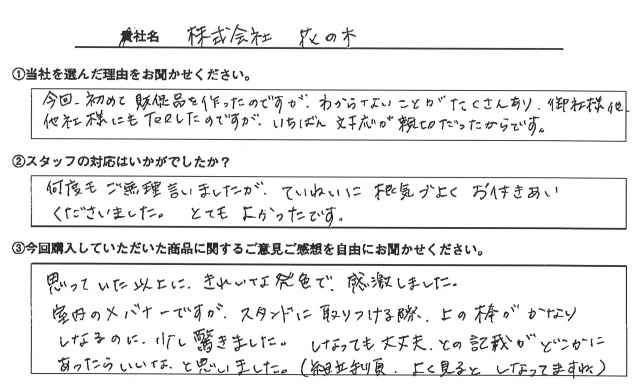 貴社名 株式会社 牧の木
①当社を選んだ理由をお聞かせください。
今回、初めて販促品を作ったのですが、わからないことがたくさんあり、御社様他、
他社様にもTELしたのですが、いちばん対応が親切だったからです。
②スタッフの対応はいかがでしたか？
何度もご無理言いましたが、ていねいに根気づよくお付きあい
くださいました。とてもよかったです。
③今回購入していただいた商品に関するご意見ご感想を自由にお聞かせください。
思っていた以上に、きれいな発色で、感激しました。
室内のXバナーですが、スタンドに取りつける際、上の棒がかなり
しなるのに、少し驚きました。しなっても大丈夫、との記載がどこかに
あったらいいな、と思いました。（組立手順、よく見るとしなってますね）